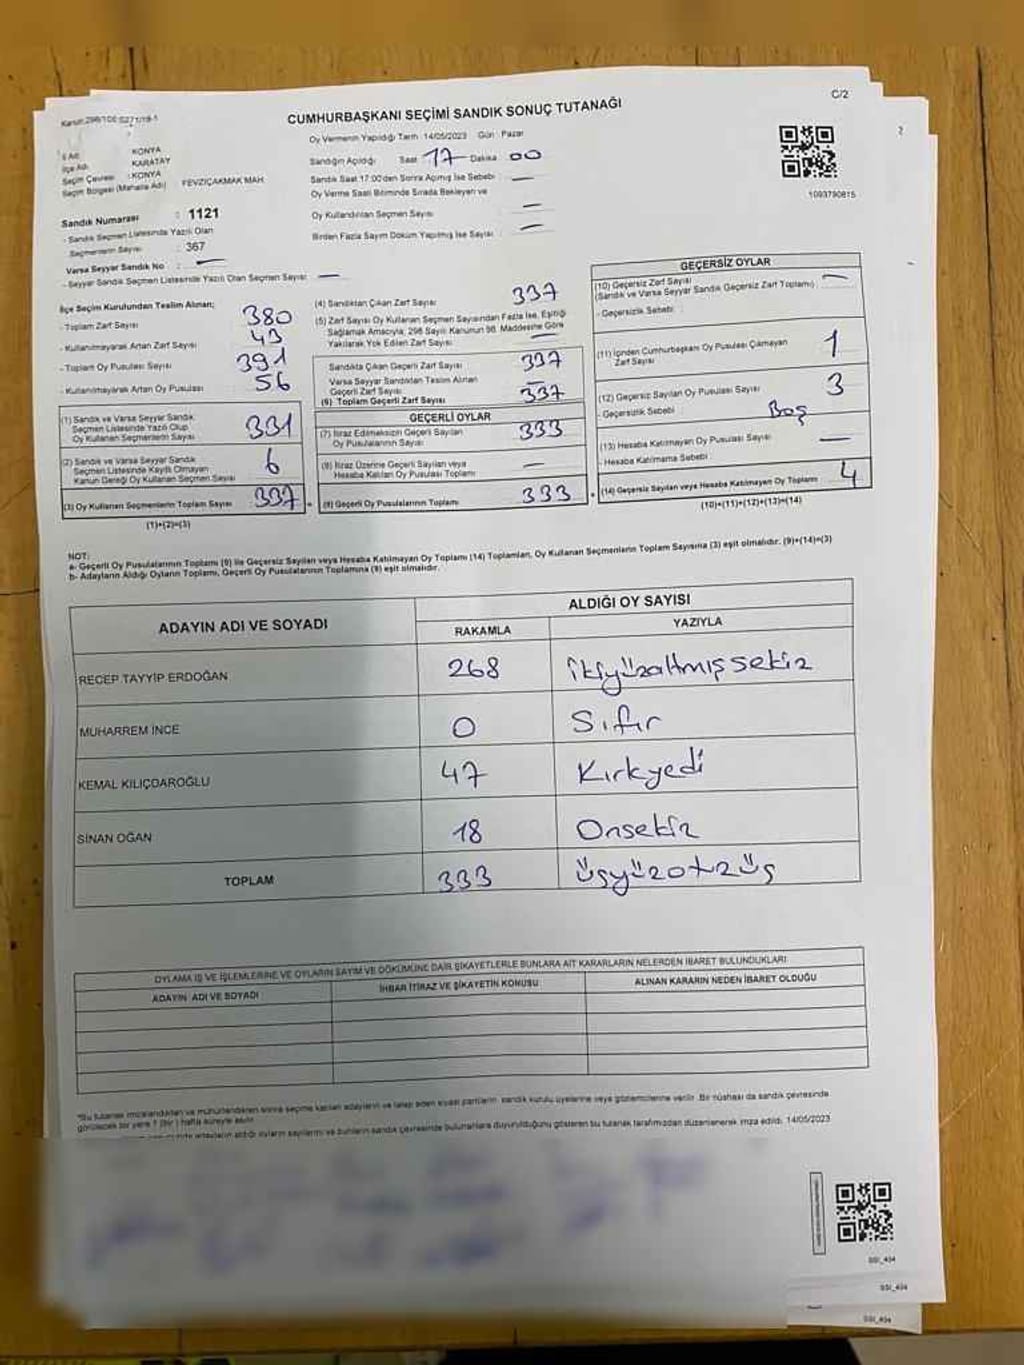 C/2
CUMHURBAŞKANI SEÇİMİ SANDIK SONUÇ TUTANAĞI
Oy Vermenin Yapıldığı Tarih : 14/05/2023 Gün : Pazar
İl Adı : KONYA
İlçe Adı : KARATAY
Seçim Çevresi : KONYA
Seçim Bölgesi (Mahalle Adı) FEVZİÇAKMAK MAH.
Sandık Numarası : 1121
- Sandık Seçmen Listesinde Yazılı Olan
Seçmenlerin Sayısı : 367
Varsa Seyyar Sandık No : —
- Seyyar Sandık Seçmen Listesinde Yazılı Olan Seçmen Sayısı : —
Sandığın Açıldığı Saat 17 Dakika 00
Sandık Saat 17:00'den Sonra Açılmış İse Sebebi : —
Oy Verme Saati Bitiminde Sırada Bekleyen ve
Oy Kullandırılan Seçmen Sayısı —
Birden Fazla Sayım Döküm Yapılmış İse Sayısı : —
1093790815
2
İlçe Seçim Kurulundan Teslim Alınan;
- Toplam Zarf Sayısı 380
- Kullanılmayarak Artan Zarf Sayısı 43
- Toplam Oy Pusulası Sayısı 391
- Kullanılmayarak Artan Oy Pusulası 56
(1) Sandık ve Varsa Seyyar Sandık
Seçmen Listesinde Yazılı Olup
Oy Kullanan Seçmenlerin Sayısı 331
(2) Sandık ve Varsa Seyyar Sandık
Seçmen Listesinde Kayıtlı Olmayan
Kanun Gereği Oy Kullanan Seçmen Sayısı 6
(3) Oy Kullanan Seçmenlerin Toplam Sayısı 337
(1)+(2)=(3)
(4) Sandıktan Çıkan Zarf Sayısı 337
(5) Zarf Sayısı Oy Kullanan Seçmen Sayısından Fazla İse, Eşitliği
Sağlamak Amacıyla, 298 Sayılı Kanunun 98. Maddesine Göre
Yakılarak Yok Edilen Zarf Sayısı —
Sandıkta Çıkan Geçerli Zarf Sayısı 337
Varsa Seyyar Sandıktan Teslim Alınan
Geçerli Zarf Sayısı —
(6) Toplam Geçerli Zarf Sayısı 337
GEÇERLİ OYLAR
(7) İtiraz Edilmeksizin Geçerli Sayılan
Oy Pusulalarının Sayısı 333
(8) İtiraz Üzerine Geçerli Sayılan veya
Hesaba Katılan Oy Pusulası Toplamı —
(9) Geçerli Oy Pusulalarının Toplamı 333
GEÇERSİZ OYLAR
(10) Geçersiz Zarf Sayısı —
(Sandık ve Varsa Seyyar Sandık Geçersiz Zarf Toplamı)
- Geçersizlik Sebebi :
(11) İçinden Cumhurbaşkanı Oy Pusulası Çıkmayan
Zarf Sayısı 1
(12) Geçersiz Sayılan Oy Pusulası Sayısı 3
- Geçersizlik Sebebi Boş
(13) Hesaba Katılmayan Oy Pusulası Sayısı —
- Hesaba Katılmama Sebebi :
(14) Geçersiz Sayılan veya Hesaba Katılmayan Oy Toplamı 4
(10)+(11)+(12)+(13)=(14)
NOT:
a- Geçerli Oy Pusulalarının Toplamı (9) ile Geçersiz Sayılan veya Hesaba Katılmayan Oy Toplamı (14) Toplamları, Oy Kullanan Seçmenlerin Toplam Sayısına (3) eşit olmalıdır. (9)+(14)=(3)
b- Adayların Aldığı Oyların Toplamı, Geçerli Oy Pusulalarının Toplamına (9) eşit olmalıdır.
ADAYIN ADI VE SOYADI ALDIĞI OY SAYISI
RAKAMLA YAZIYLA
RECEP TAYYİP ERDOĞAN 268 ikiyüzaltmışsekiz
MUHARREM İNCE 0 Sıfır
KEMAL KILIÇDAROĞLU 47 Kırkyedi
SİNAN OĞAN 18 Onsekiz
TOPLAM 333 üçyüzotzüç
OYLAMA İŞ VE İŞLEMLERİNE VE OYLARIN SAYIM VE DÖKÜMÜNE DAİR ŞİKAYETLERLE BUNLARA AİT KARARLARIN NELERDEN İBARET BULUNDUKLARI
ADAYIN ADI VE SOYADI İHBAR İTİRAZ VE ŞİKAYETİN KONUSU ALINAN KARARIN NEDEN İBARET OLDUĞU
*Bu tutanak imzalandıktan ve mühürlendikten sonra seçime katılan adayların ve talep eden siyasi partilerin sandık kurulu üyelerine veya gözlemcilerine verilir. Bir nüshası da sandık çevresinde
görülecek bir yere 1 (bir) hafta süreyle asılır.
adayların aldığı oyların sayılarını ve bunların sandık çevresinde bulunanlara duyurulduğunu gösteren bu tutanak tarafımızdan düzenlenerek imza edildi. 14/05/2023
SSI_404
SSI_404
SSI_404